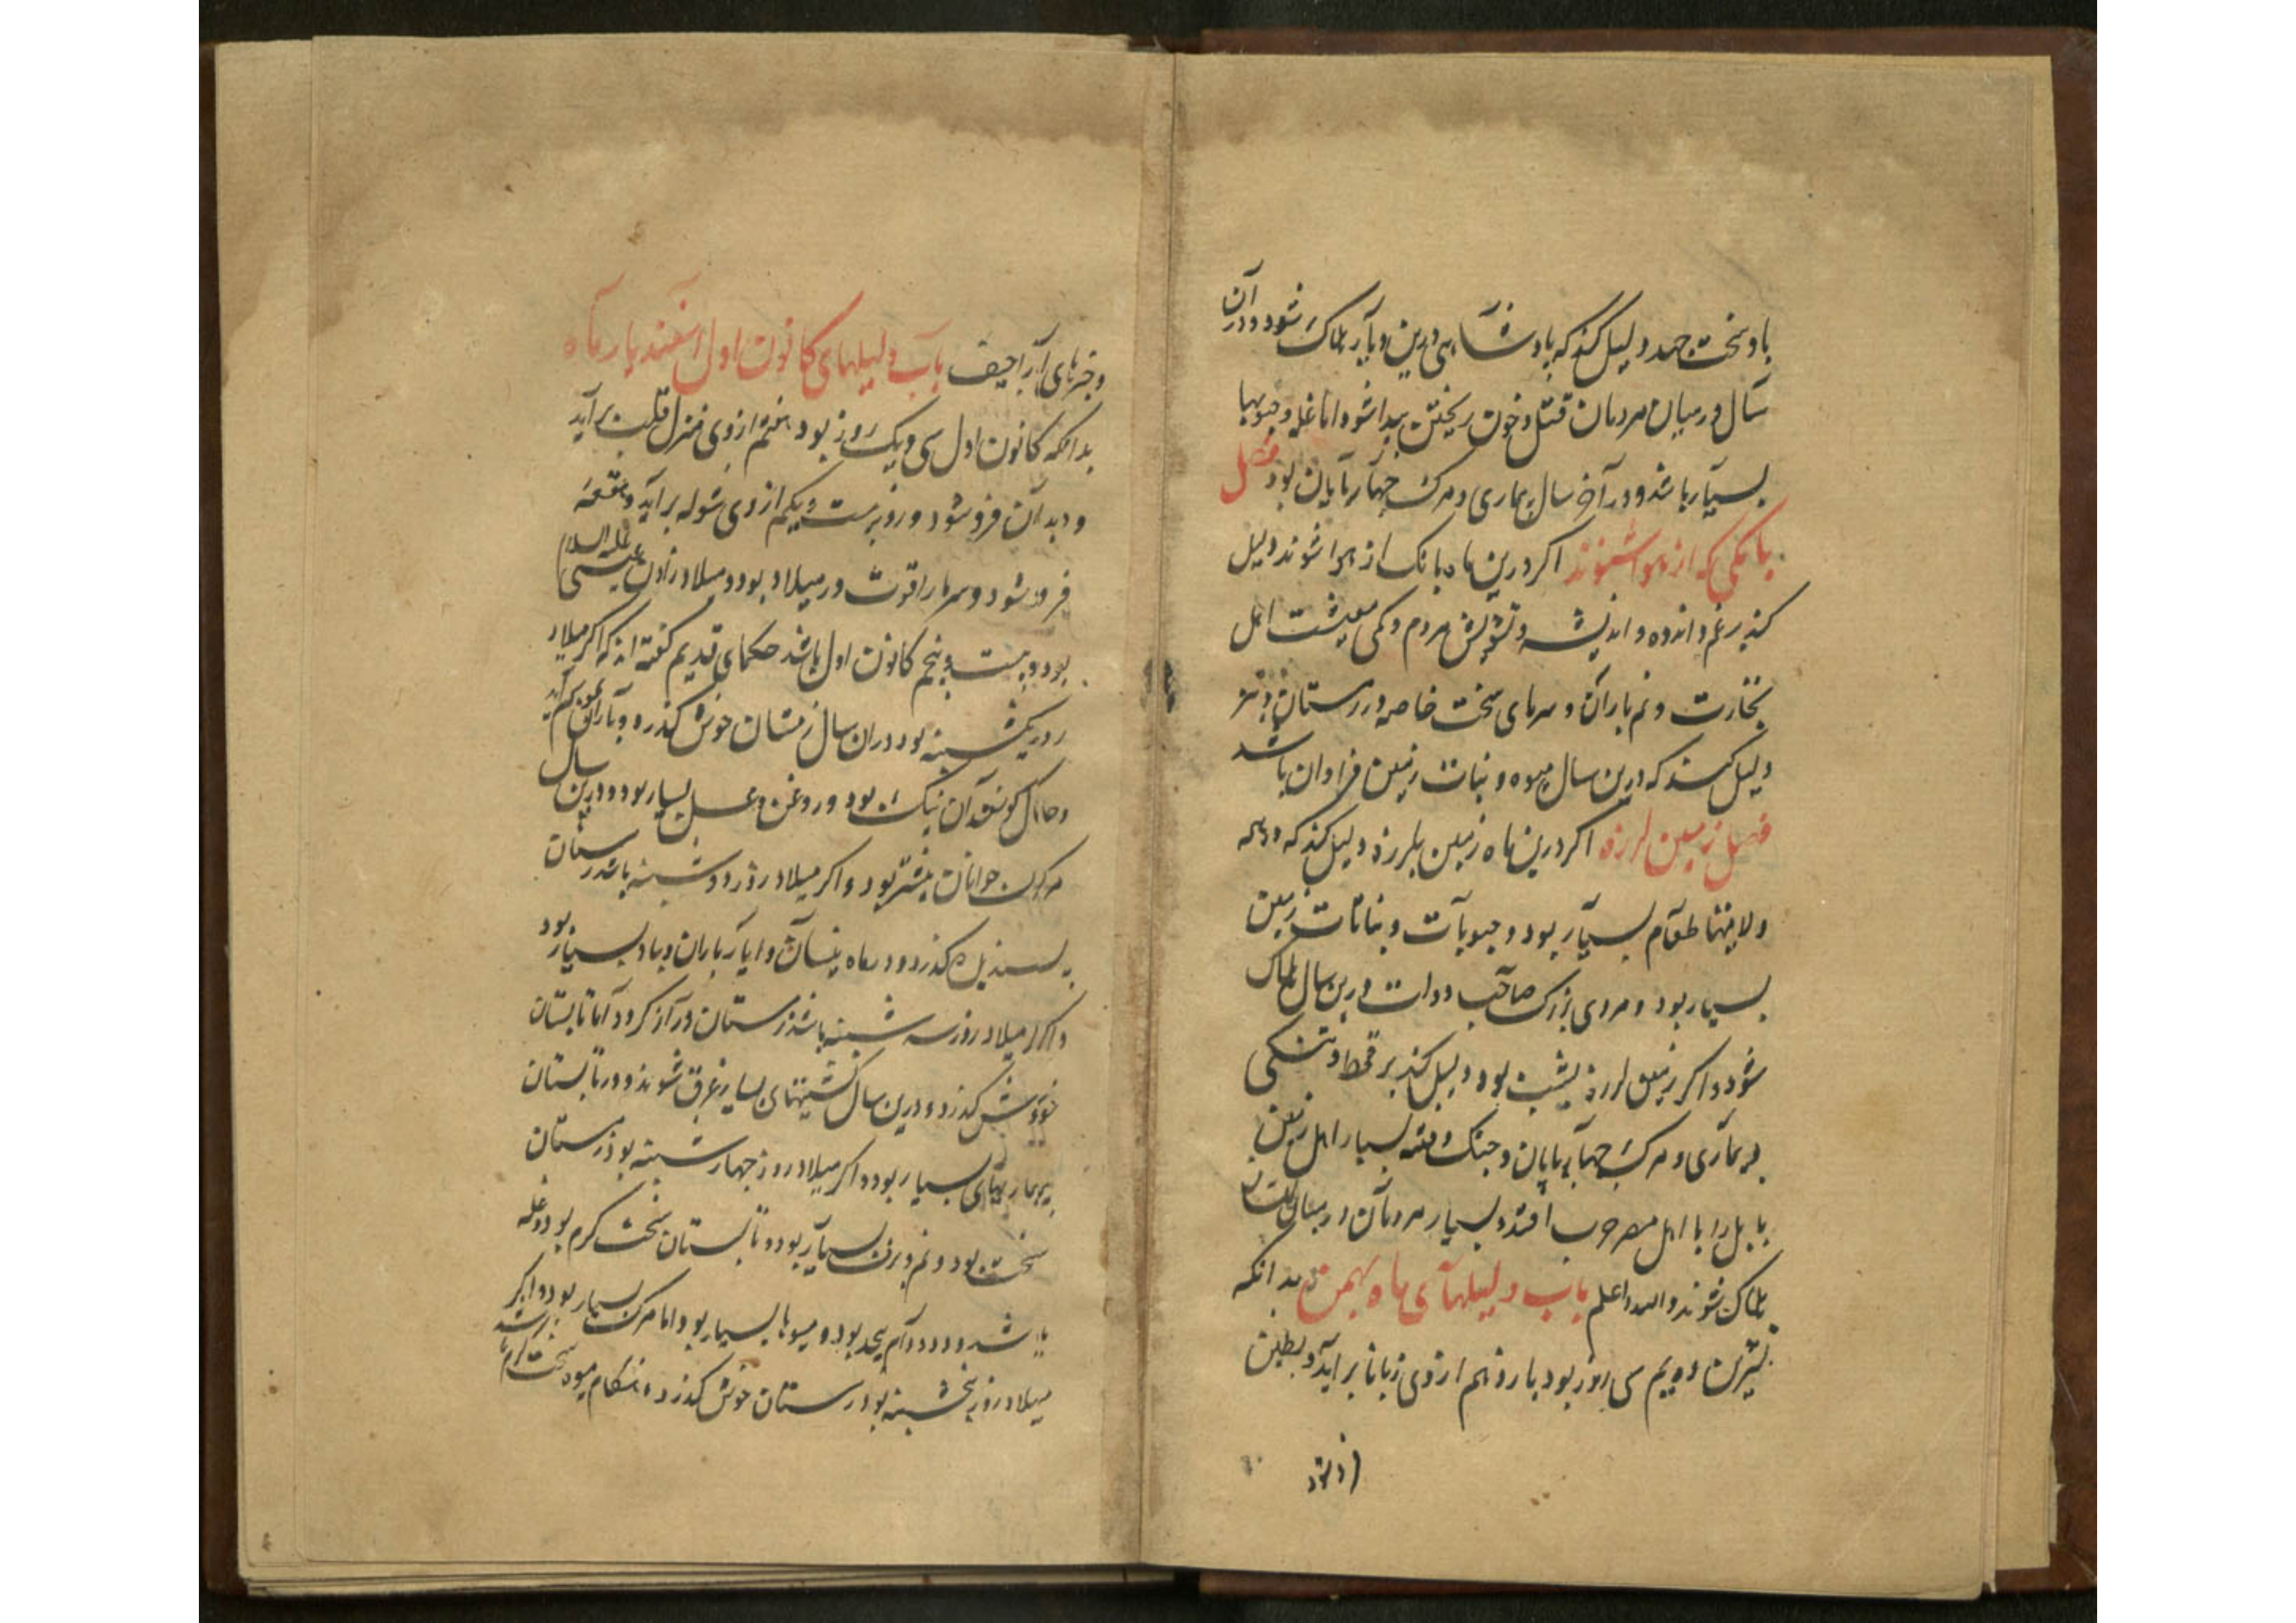 باد سخت جهد دلیل کند که پادشاهی درین دیار هلاک شود و در آن
سال در میان مردمان قتل و خون ریختن پیدا شود اما غله و حبوبها
بسیار باشد و در آخر سال بیماری و مرک چهارپایان بود فصل
بانکی که از هوا شنوند اکر درین ماه بانک از هوا شنوند دلیل
کند بر غم و اندوه و اندیشه و تشویش مردم و کمی معیشت اهل
تجارت و نم باران و سرمای سخت خاصه در زمستان و نیز
دلیل کند که درین سال میوه و نبات زمین فراوان باشد
فصل زمین لرزه اکر درین ماه زمین بلرزد دلیل کند که در همه
ولایتها طعام بسیار بود و حبوبات و نباتات زمین
بسیار بود و مردی بزرک صاحب دولت درین سال هلاک
شود و اکر زمین لرزه بشب بود دلیل کند بر قحط و تنکی
و بیماری و مرک چهارپایان و جنک و فتنه بسیار اهل زمین
بابل را با اهل مصر حرب افتد و بسیار مردمان در میان
هلاک شوند والله اعلم باب دلیلهای ماه بهمن بدانکه
تشرین دویم سی روز بود یازدهم از وی زبانا برآید و بطین
فرو شود
و خبرهای اراجیف باب دلیلهای کانون اول اسفندیار ماه
بدانکه کانون اول سی و یک روز بود هفتم از وی منزل قلب برآید
و دبران فرو شود و روز بیست و یکم از وی شوله برآید و هقعه
فرو شود و سرما را قوت در میلاد بود و میلاد زادن عیسی علیه السلام
بود و بیست و پنجم کانون اول باشد حکمای قدیم کفته اند که اکر میلاد
روز یکشنبه بود در آن سال زمستان خوش کذرد و باران کم آید
و حال کوسفندان نیک بود و روغن و عسل بسیار بود و درین سال
مرک جوانان بیشتر بود و اکر میلاد روز دوشنبه باشد زمستان
کذرد و در ماه نیسان و ایار باران و باد بسیار بود
و اکر میلاد روز سه شنبه باشد زمستان دراز کردد اما تابستان
خوش کذرد و درین سال کشتیهای بسیار غرق شوند و در تابستان
بیماریهای بسیار بود و اکر میلاد روز چهارشنبه بود زمستان
سخت بود و نم و برف بسیار بود و تابستان سخت کرم بود و غله
بود و میوها بسیار بود اما مرک بسیار بود و اکر
میلاد روز پنجشنبه بود زمستان خوش کذرد و هنکام میوه سخت کرم باشد